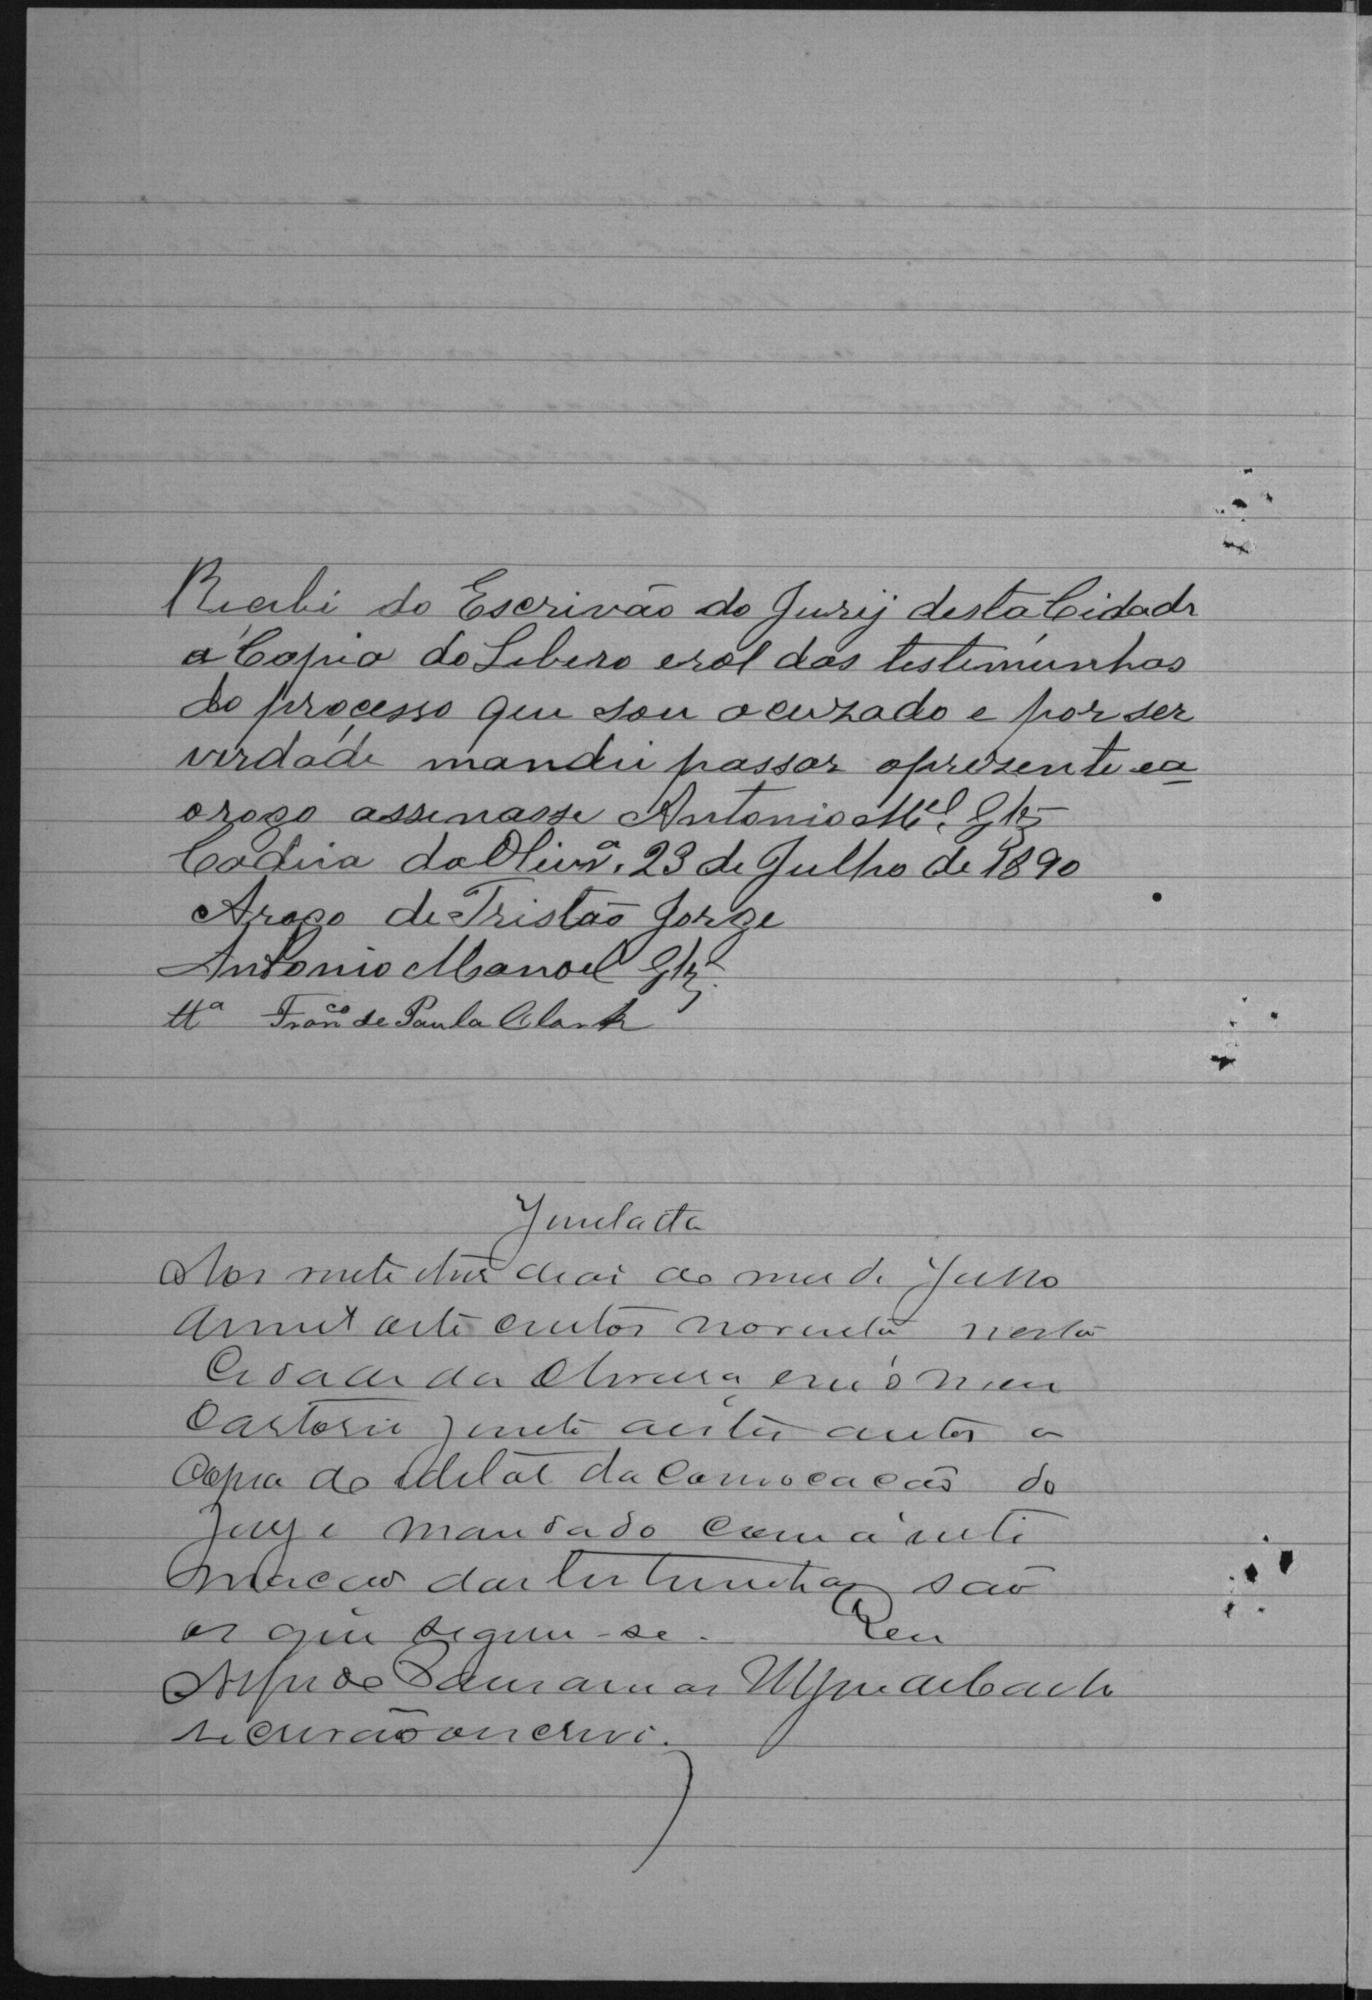 Recebi do Escrivão do Jurij desta Cidade
a Copia do Libero e rol das testimunhas
do processo que sou acuzado e por ser
verdade mandei passar aprezente ea
arogo assenasse Antonio Mel. Glz
Cadeia da Olivra. 23 de Julho de 1890
Arogo de Tristão Jorge
Antonio Manoel Glz.
tta Franco de Paula Clark
Junctada
Aos vinte tres dias do mes de Julho
de mil oito centos noventa nesta
Cidade da Oliveira em o meu
Cartorio juntei a estes autos a
Copia do edital da Convocacão do
Jury e mandado com a inti
macão das testimunhas são
os que seguem-se. Eeu
Alfredo
escrivão oescrevi.